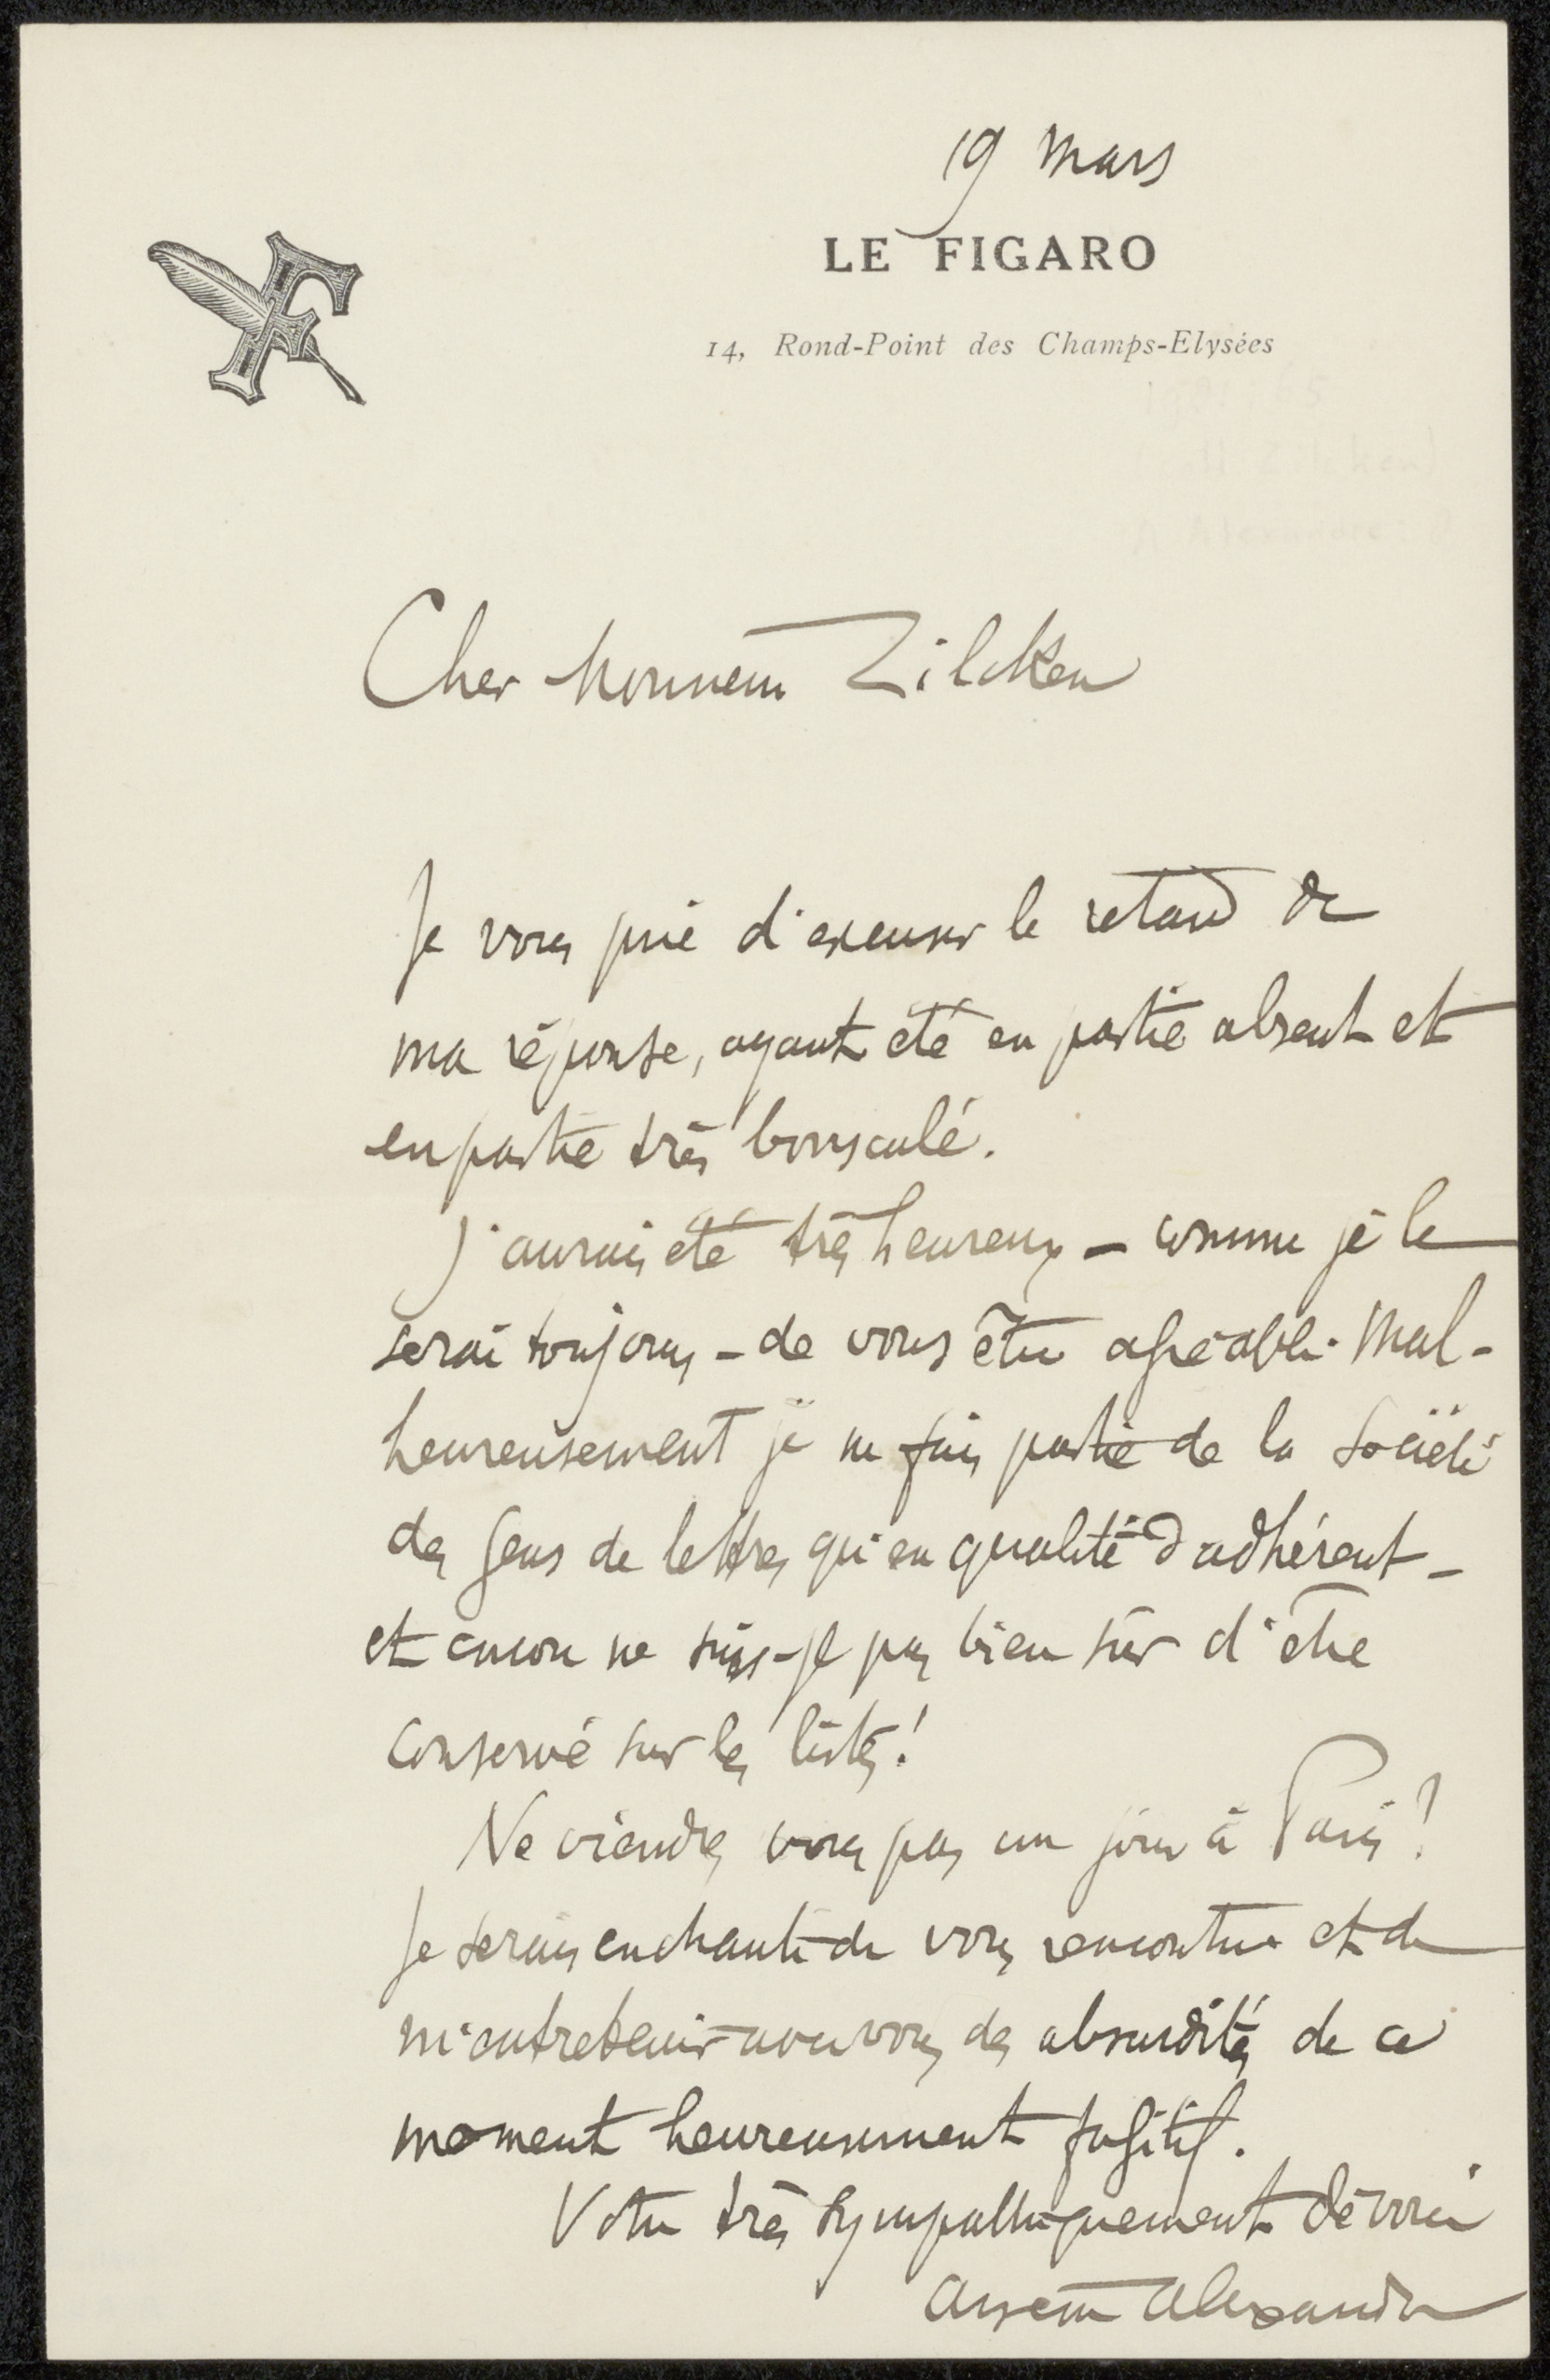 19 mars
LE FIGARO
14, Rond-Point des Champs-Elysées
Cher Monsieur Zilcken
Je vous prie d'excuser le retard de
ma réponse, ayant été en partie absent et
en partie très bousculé.
J'aurais été très heureux — comme je le
serai toujours — de vous être agréable. Mal-
heureusement je ne fais partie de la Société
des Gens de lettres qu'en qualité d'adhérent —
et encore ne suis-je pas bien sûr d'être
conservé sur les listes!
Ne viendrez vous pas un jour à Paris?
Je serais enchanté de vous rencontrer et de
m'entretenir avec vous des absurdités de ce
moment heureusement fugitif.
Votre très sympathiquement dévoué
Arsène Alexandre